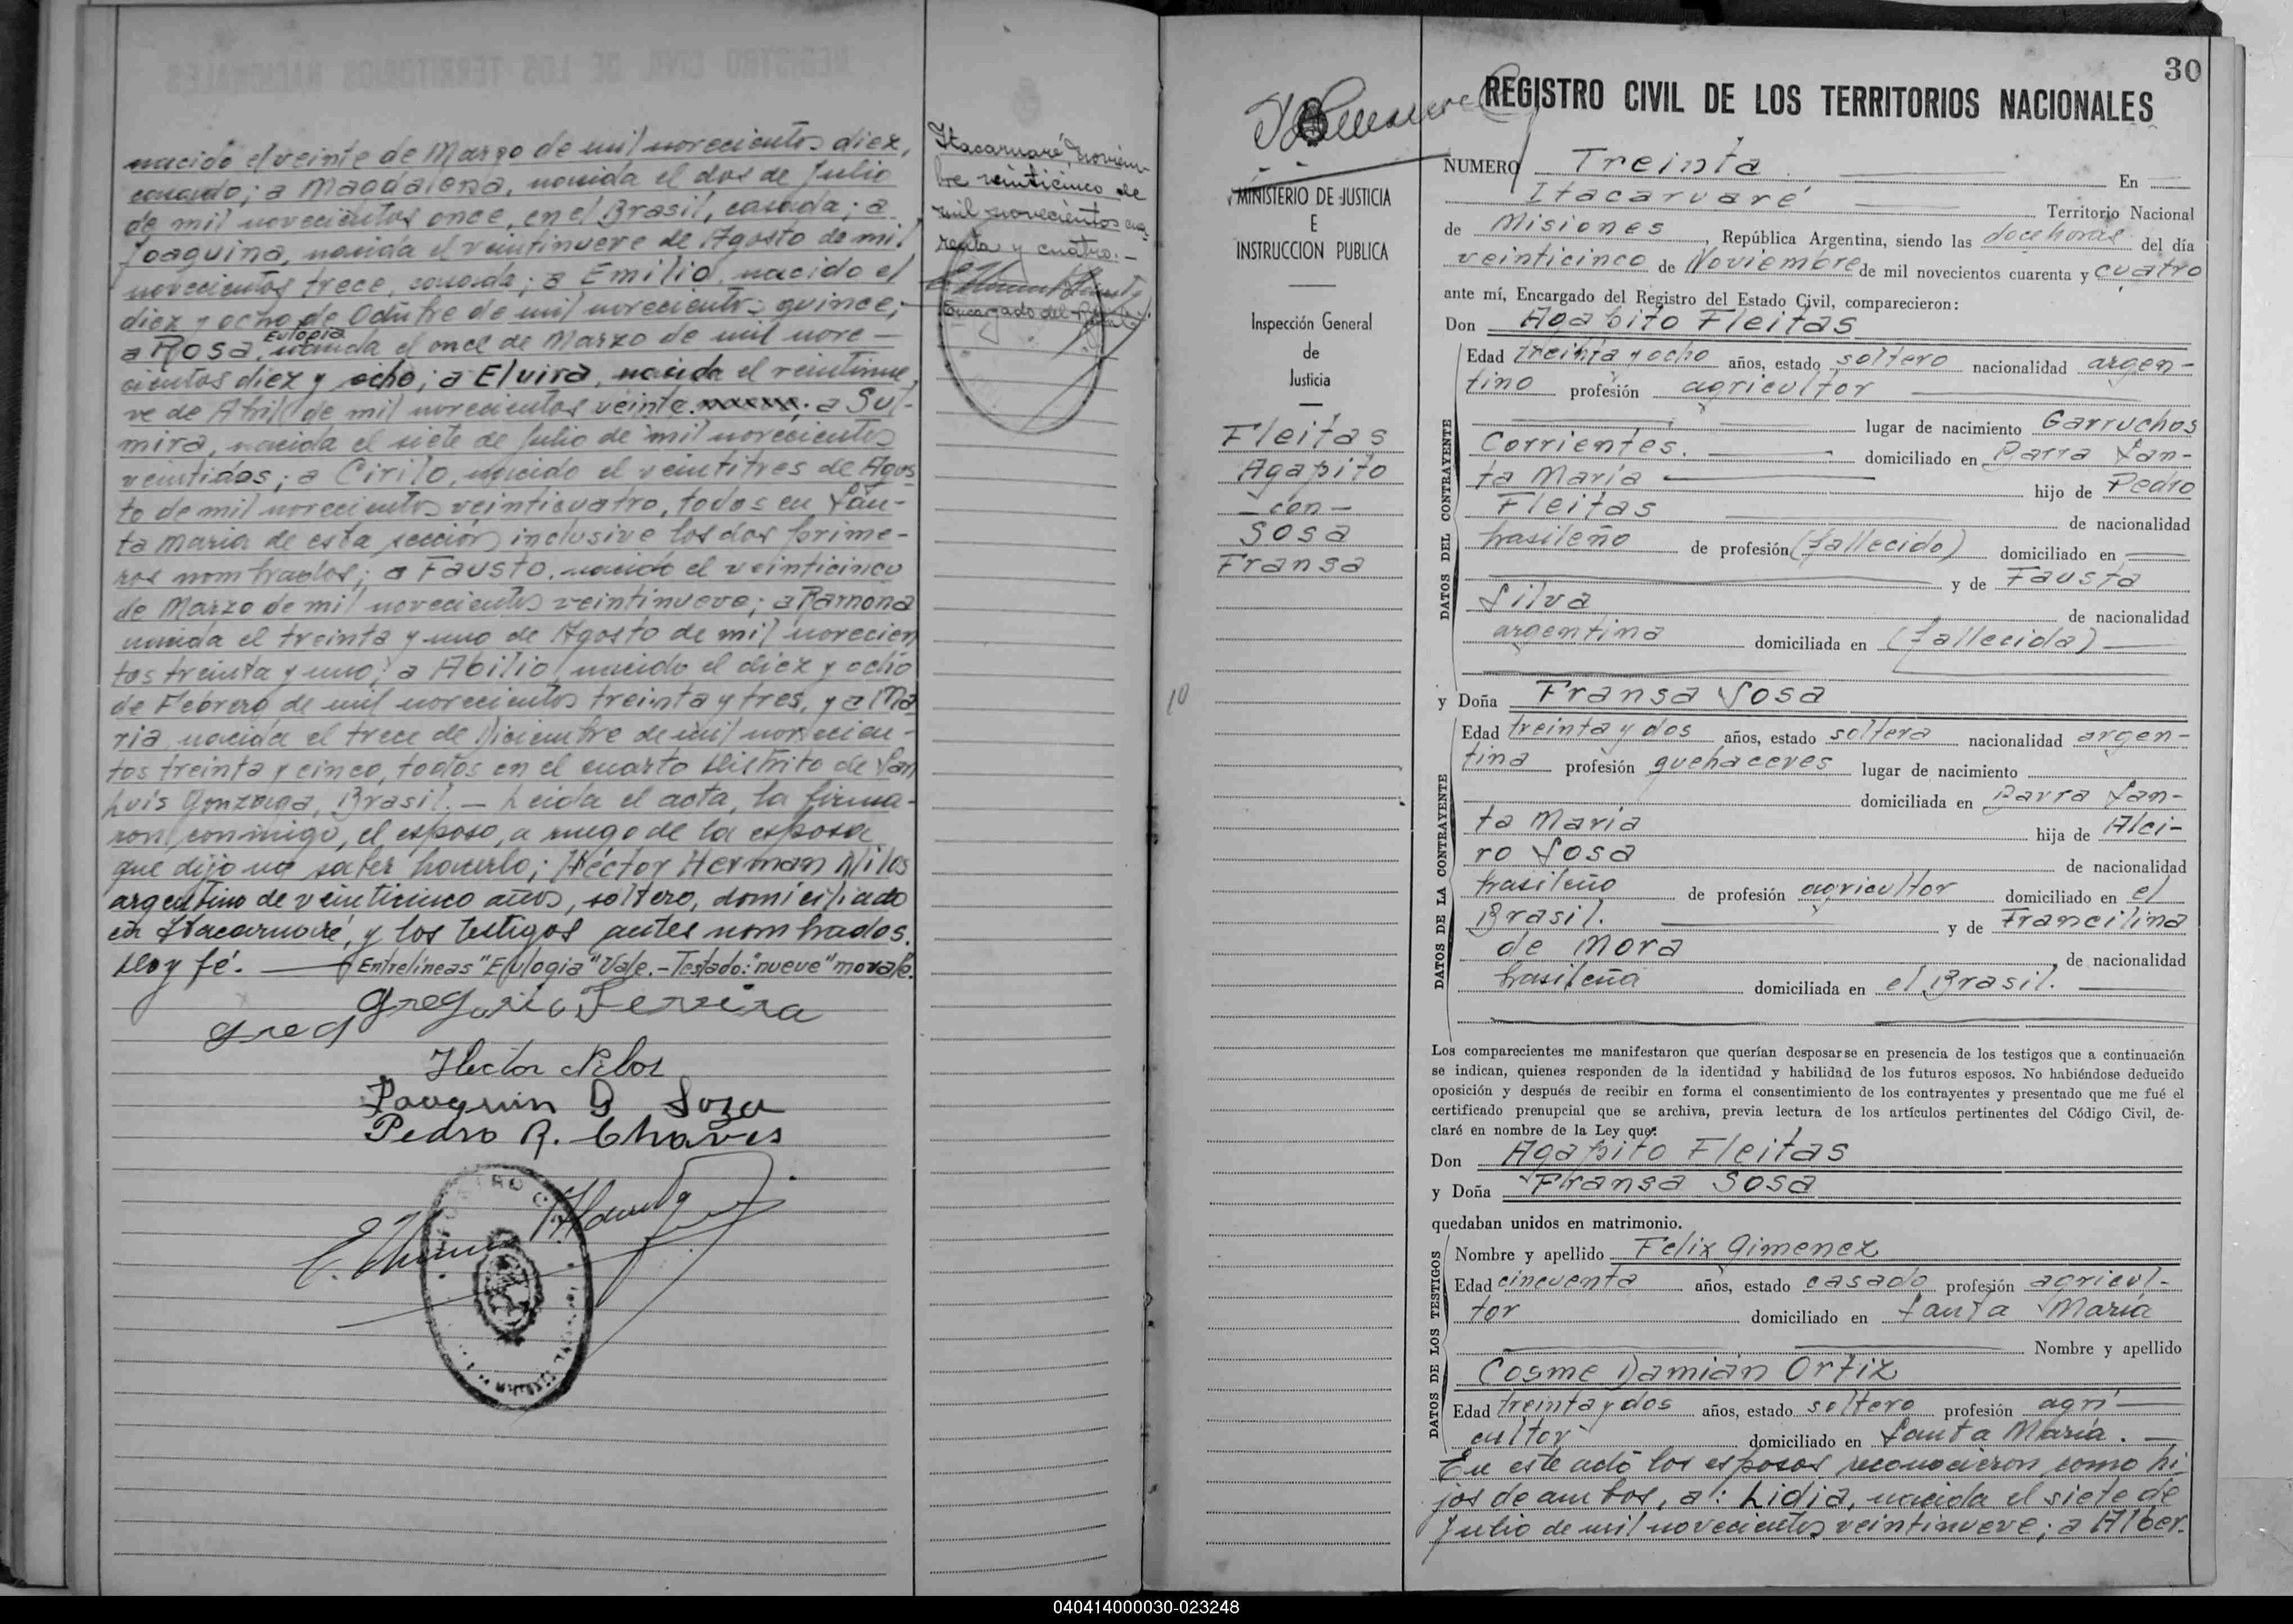 nacido el veinte de Marzo de mil novecientos diez,
casado; a Magdalena, nacida el dos de Julio
de mil novecientos once, en el Brasil, casada; a
Joaquina, nacida el veintinueve de Agosto de mil
novecientos trece, casada; a Emilio, nacido el
diez y ocho de Octubre de mil novecientos quince;
Eulogia
a Rosa, nacida el once de Marzo de mil nove-
cientos diez y ocho; a Elvira, nacida el veintinue
ve de Abril de mil novecientos veinte; a Sul-
mira, nacida el siete de Julio de mil novecientos
veintidos; a Cirilo, nacido el veintitres de Agos
to de mil novecientos veinticuatro, todos en San-
ta Maria de esta sección inclusive los dos prime-
ros nombrados; a Fausto, nacido el veinticinco
de Marzo de mil novecientos veintinueve; a Ramona
nacida el treinta y uno de Agosto de mil novecien
tos treinta y uno; a Abilio, nacido el diez y ocho
de Febrero de mil novecientos treinta y tres, y a Ma
ria, nacida el trece de Diciembre de mil novecien-
tos treinta y cinco, todos en el cuarto Distrito de San
Luis Gonzaga, Brasil. — Leida el acta, la firma-
ron conmigo, el esposo, a ruego de la esposa
que dijo no saber hacerlo; Héctor Herman Nilos
argentino de veinticinco años, soltero, domiciliado
en Itacaruaré, y los testigos antes nombrados.
Doy fé. — Entrelíneas "Eulogia" Vale. - Testado: "nueve"
Gregorio Ferreira
greg
Hector Nilos
Joaquin Soza
Pedro R. Chaves
Itacaruaré, Noviem-
bre veinticinco de
mil novecientos cua-
renta y cuatro. -
Encargado del
30
REGISTRO CIVIL DE LOS TERRITORIOS NACIONALES
MINISTERIO DE JUSTICIA
E
INSTRUCCION PUBLICA
Inspección General
de
Justicia
Fleitas
Agapito
- con -
Sosa
Fransa
10
NUMERO Treinta En
Itacaruaré Territorio Nacional
de Misiones, República Argentina, siendo las doce horas del día
veinticinco de Noviembre de mil novecientos cuarenta y cuatro
ante mí, Encargado del Registro del Estado Civil, comparecieron:
Don Agapito Fleitas
DATOS DEL CONTRAYENTE
Edad treinta y ocho años, estado soltero nacionalidad argen-
tino profesión agricultor
lugar de nacimiento Garruchos
Corrientes. domiciliado en Barra San-
ta María hijo de Pedro
Fleitas de nacionalidad
brasileño de profesión (fallecido) domiciliado en
y de Fausta
Silva de nacionalidad
argentina domiciliada en (fallecida)
y Doña Fransa Sosa
DATOS DE LA CONTRAYENTE
Edad treinta y dos años, estado soltera nacionalidad argen-
tina profesión quehaceres lugar de nacimiento
domiciliada en Barra San-
ta Maria hija de Alci-
ro Sosa de nacionalidad
brasileño de profesión agricultor domiciliado en el
Brasil. y de Francilina
de Mora de nacionalidad
brasileña domiciliada en el Brasil.
Los comparecientes me manifestaron que querían desposarse en presencia de los testigos que a continuación
se indican, quienes responden de la identidad y habilidad de los futuros esposos. No habiéndose deducido
oposición y después de recibir en forma el consentimiento de los contrayentes y presentado que me fué el
certificado prenupcial que se archiva, previa lectura de los artículos pertinentes del Código Civil, de-
claré en nombre de la Ley que:
Don Agapito Fleitas
y Doña Fransa Sosa
quedaban unidos en matrimonio.
DATOS DE LOS TESTIGOS
Nombre y apellido Felix Gimenez
Edad cincuenta años, estado casado profesión agricul-
tor domiciliado en Santa María
Nombre y apellido
Cosme Damián Ortiz
Edad treinta y dos años, estado soltero profesión agri
cultor domiciliado en Santa María. -
En este acto los esposos reconocieron como hi
jos de ambos, a: Lidia, nacida el siete de
Julio de mil novecientos veintinueve; a Alber.
040414000030-023248